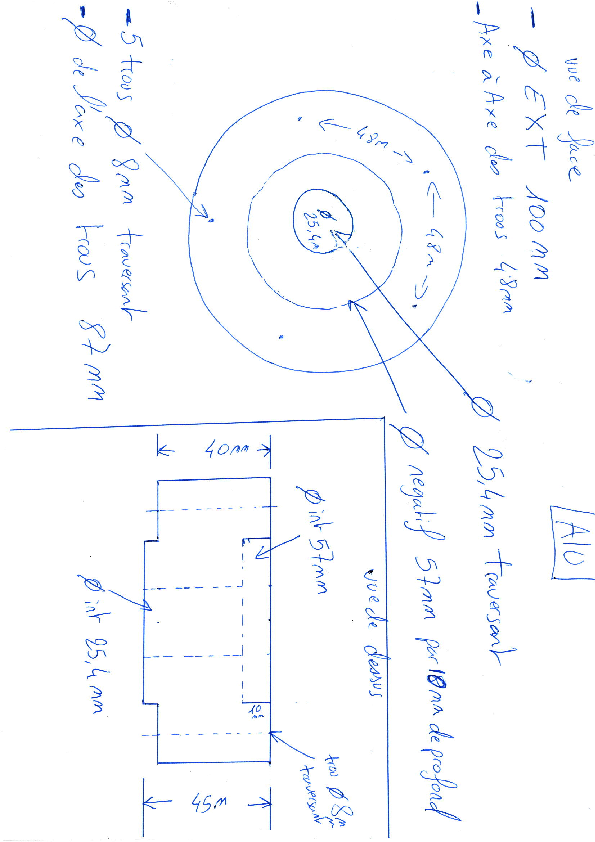 vue de face
- Ø EXT 100mm
- Axe à Axe des trous 48mm
48m
48m
Ø
25,4m
- 5 trous Ø 8mm traversant
- Ø de l'axe des trous 87mm
Ø 25,4mm traversant
Ø negatif 57mm par 10mm de profond
ALU
vue de dessus
40mm
Ø int 57mm
Ø int 25,4mm
45m
trou Ø 8m
traversant